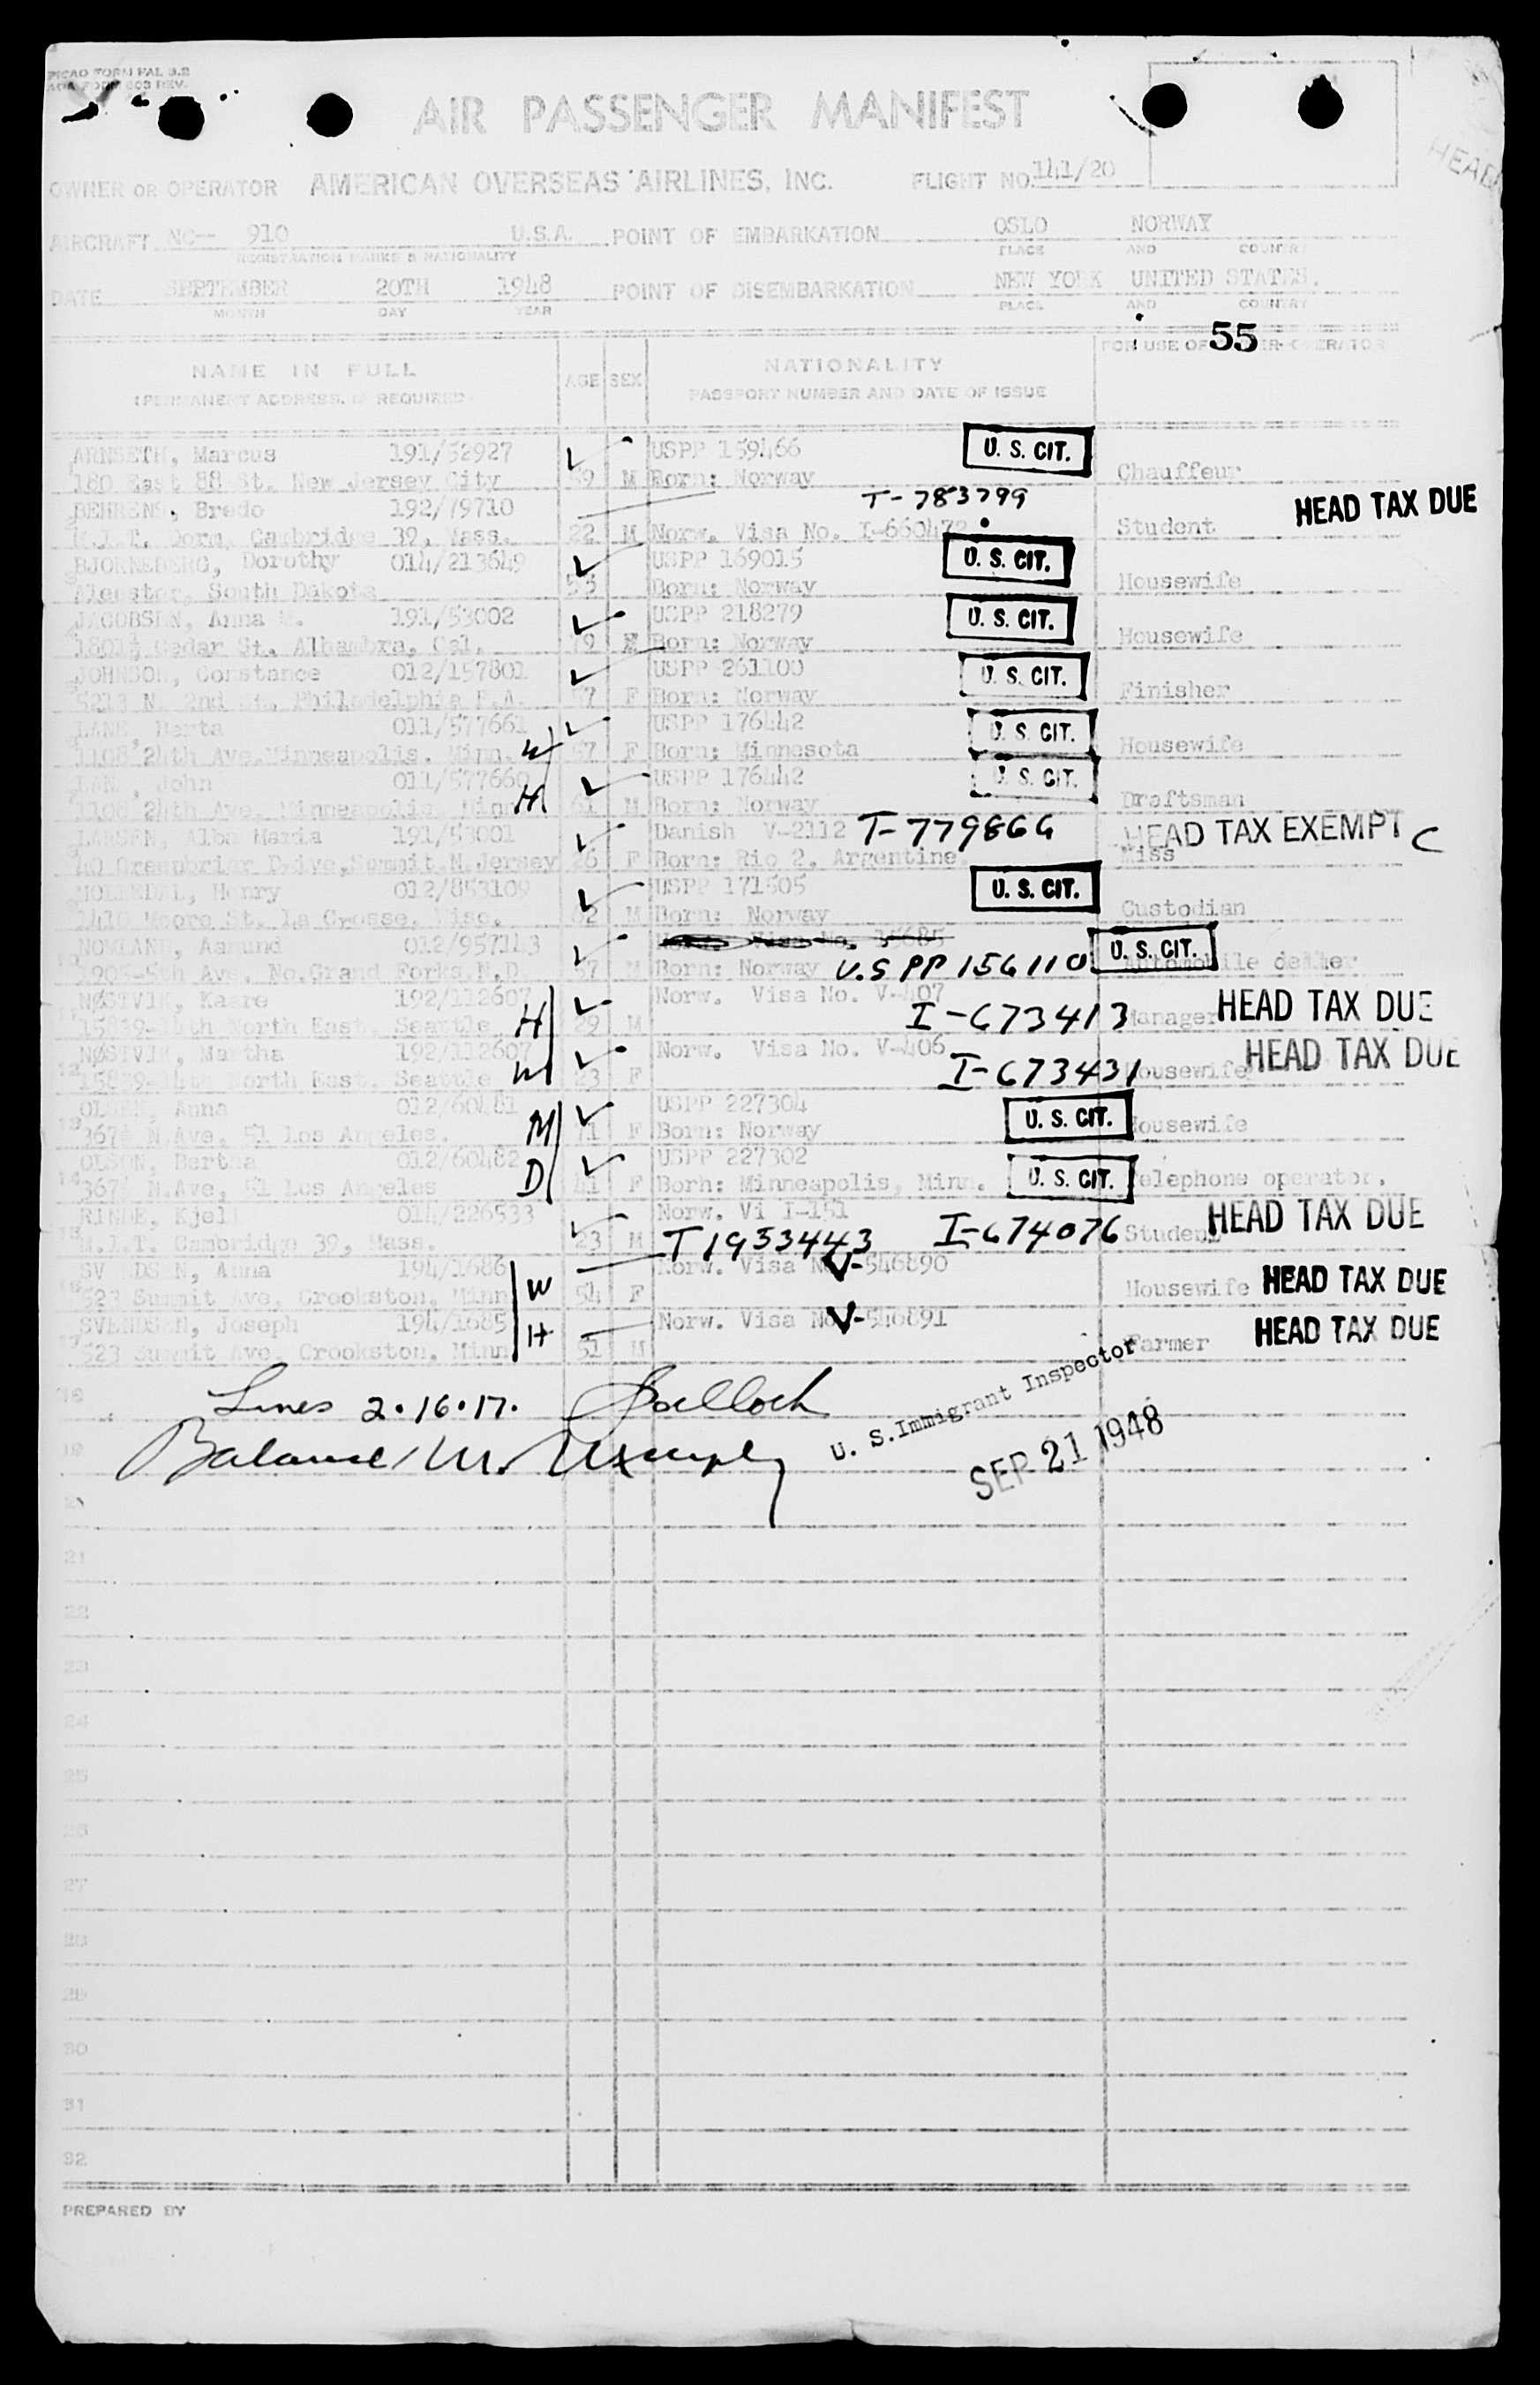 PICAO FORM FAL 3.2
FORM 603 REV.
AIR PASSENGER MANIFEST
HEAD
OWNER OR OPERATOR AMERICAN OVERSEAS AIRLINES, INC. FLIGHT NO. 141/20
AIRCRAFT NC— 910 U.S.A. POINT OF EMBARKATION OSLO NORWAY
REGISTRATION MARKS & NATIONALITY PLACE AND COUNTRY
DATE SEPTEMBER 20TH 1948 POINT OF DISEMBARKATION NEW YORK UNITED STATES.
MONTH DAY YEAR PLACE AND COUNTRY
55
NAME IN FULL AGE SEX NATIONALITY FOR USE OF OPERATOR
(PERMANENT ADDRESS, IF REQUIRED) PASSPORT NUMBER AND DATE OF ISSUE
ARNSETH, Marcus 191/52927 USPP 159466 U. S. CIT.
180 East 88 St. New Jersey City 59 M Born: Norway Chauffeur
BEHRENS, Bredo 192/79710 T-783799 HEAD TAX DUE
M.I.T. Dorm, Cambridge 39, Mass. 22 M Norw. Visa No. I-660472 Student
Dorothy 014/213649 USPP 169015 U. S. CIT.
South Dakota 55 Born: Norway Housewife
JACOBSEN, Anna 191/53002 USPP 218279 U. S. CIT.
1801½ Cedar St. Alhambra, Cal. Born: Norway Housewife
JOHNSON, Constance 012/157801 USPP 261100 U. S. CIT.
5213 N. 2nd St. Philadelphia P.A. 57 F Born: Norway Finisher
Berta 011/577661 USPP 176442 U. S. CIT.
1108 24th Ave. Minneapolis. Minn. W 57 F Born: Minnesota Housewife
John 011/577660 USPP 176442 U. S. CIT.
1108 24th Ave. Minneapolis. Minn H 61 M Born: Norway Draftsman
LARSEN, Alba Maria 191/53001 Danish V-2112 T-779866 HEAD TAX EXEMPT C
40 Greenbriar Drive, Summit, N. Jersey 26 F Born: Rio 2, Argentine. Miss
Henry 012/853109 USPP 171505 U. S. CIT.
1410 Moore St. La Crosse, Wisc. 62 M Born: Norway Custodian
NOMLAND, Asmund 012/957143 Visa No. 15685 U. S. CIT.
1905-5th Ave. No. Grand Forks N.D. 57 M Born: Norway U.S PP 156110 Automobile dealer
NØSTVIK, Kaare 192/112607 Norw. Visa No. V-407
15839-14th North East. Seattle H 29 M I-673413 Manager HEAD TAX DUE
12 NØSTVIK, Martha 192/112607 Norw. Visa No. V-406 HEAD TAX DUE
15839-14th North East. Seattle W 23 F I-673431 Housewife
OLSEN, Anna 012/60481 USPP 227304 U. S. CIT.
13 N.Ave. 51 Los Angeles. M 71 F Born: Norway Housewife
OLSON, Bertha 012/60482 USPP 227302 U. S. CIT.
14 N.Ave, 51 Los Angeles D 41 F Borh: Minneapolis, Minn. Telephone operator.
RINDE, Kjell 014/226533 Norw. Vi I-151 HEAD TAX DUE
M.I.T. Cambridge 39, Mass. 23 M T1953443 I-674076 Student
SVENDSEN, Anna 194/1686 Norw. Visa No V-546890
523 Summit Ave. Crookston, Minn W 54 F Housewife HEAD TAX DUE
SVENDSEN, Joseph 194/1685 Norw. Visa No V-546891
523 Summit Ave. Crookston, Minn H 51 M Farmer HEAD TAX DUE
18 Lines 2.16.17.
19 Balance
U. S. Immigrant Inspector
SEP 21 1948
21
22
23
24
25
26
27
28
29
30
31
32
PREPARED BY